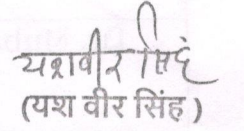 यशवीर सिंह
(यश वीर सिंह)